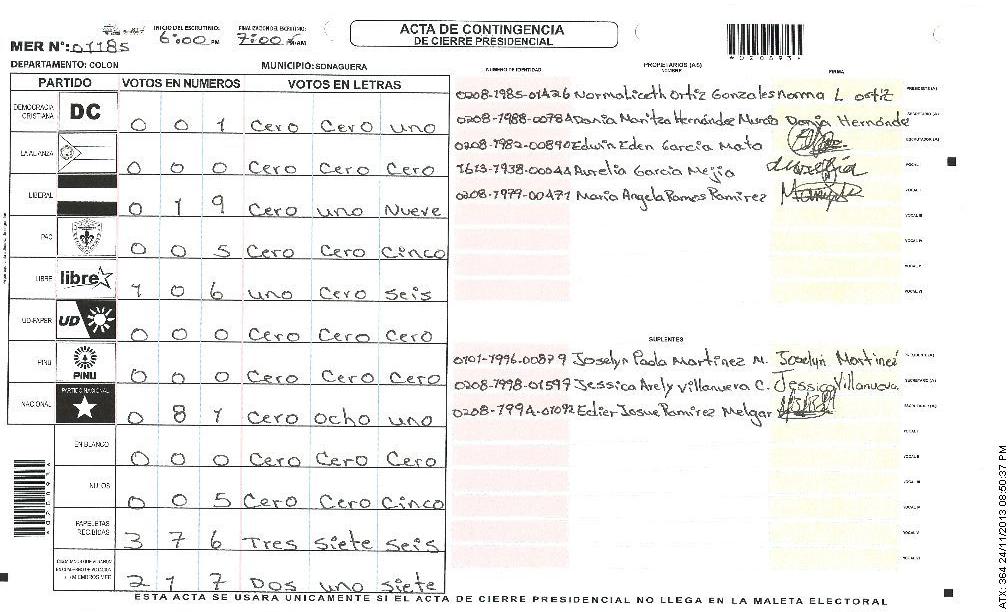 INICIO DEL ESCRUTINIO: 6:00 PM FINALIZACION DEL ESCRUTINIO: 7:00 AM
MER N°: 01185
ACTA DE CONTINGENCIA
DE CIERRE PRESIDENCIAL
*020893*
DEPARTAMENTO: COLON MUNICIPIO: SONAGUERA
PARTIDO VOTOS EN NUMEROS VOTOS EN LETRAS
DEMOCRACIA CRISTIANA DC 0 0 1 Cero Cero uno
LA ALIANZA 0 0 0 Cero Cero Cero
LIBERAL 0 1 9 Cero uno Nueve
PAC 0 0 5 Cero Cero Cinco
LIBRE libre 1 0 6 uno Cero seis
UD-FAPER UD 0 0 0 Cero Cero Cero
PINU PINU 0 0 0 Cero Cero Cero
NACIONAL PARTIDO NACIONAL 0 8 1 Cero ocho uno
EN BLANCO 0 0 0 Cero Cero Cero
NULOS 0 0 5 Cero Cero Cinco
PAPELETAS RECIBIDAS 3 7 6 Tres siete seis
2 1 7 Dos uno siete
NUMERO DE IDENTIDAD PROPIETARIOS (AS) NOMBRE FIRMA
0208-1985-01426 Norma Liceth Ortiz Gonzales Norma L ortiz PRESIDENTE (A)
0208-1988-00784 Dania Maritza Hernández Murcia Dania Hernández SECRETARIO (A)
0208-1982-00890 Edwin Eden Garcia Mato ESCRUTADOR (A)
1613-1938-00044 Aurelia Garcia Mejia VOCAL I
0208-1979-00471 Maria Angela Ramos Ramirez VOCAL II
VOCAL III
VOCAL IV
VOCAL V
VOCAL VI
SUPLENTES
0101-1996-00879 Joselyn Paola Martinez M. Joselyn Martinez
0208-1998-01599 Jessica Arely Villanueva C. Jessica Villanueva SECRETARIO (A)
0208-1994-01092 Edier Josue Ramirez Melgar
ESTA ACTA SE USARA UNICAMENTE SI EL ACTA DE CIERRE PRESIDENCIAL NO LLEGA EN LA MALETA ELECTORAL
ATX 364 24/11/2013 08:50:37 PM